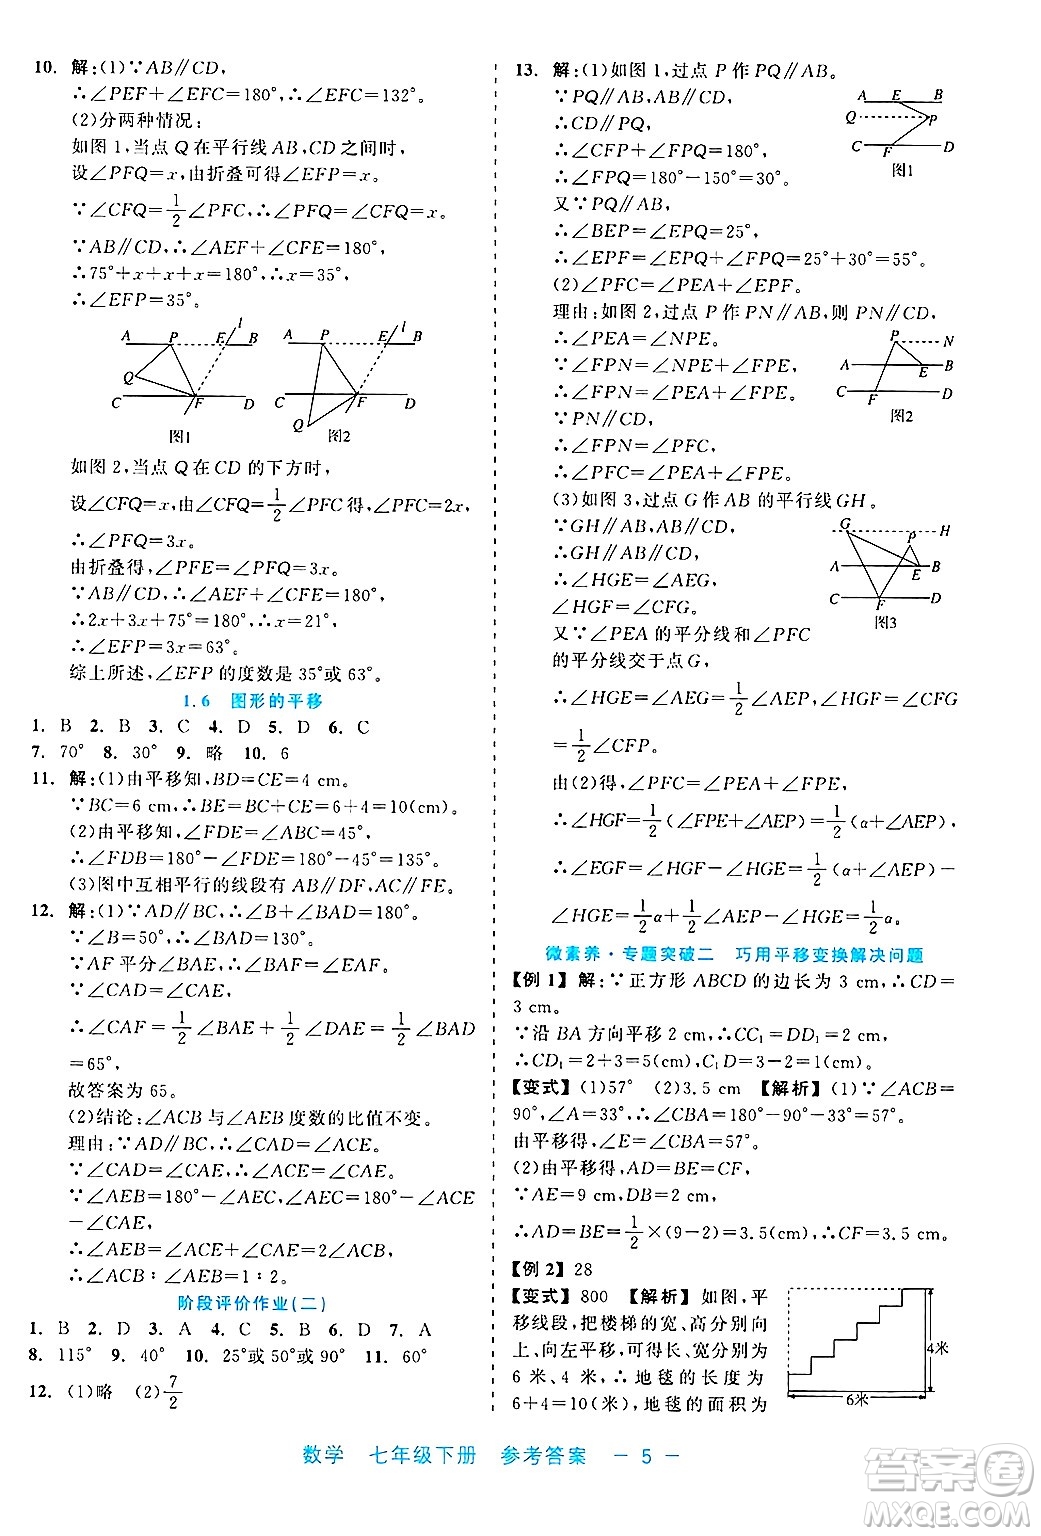 10. 解:(1)∵AB∥CD,
∴∠PEF+∠EFC=180°,∴∠EFC=132°.
(2)分两种情况:
如图 1,当点 Q 在平行线 AB,CD 之间时,
设∠PFQ=x,由折叠可得∠EFP=x.
∵∠CFQ=1/2∠PFC,∴∠PFQ=∠CFQ=x.
∵AB∥CD,∴∠AEF+∠CFE=180°,
∴75°+x+x+x=180°,∴x=35°,
∴∠EFP=35°.
A P E l B
Q
C F D
图1
A P E l B
C F D
Q
图2
如图 2,当点 Q 在 CD 的下方时,
设∠CFQ=x,由∠CFQ=1/2∠PFC 得,∠PFC=2x,
∴∠PFQ=3x.
由折叠得,∠PFE=∠PFQ=3x.
∵AB∥CD,∴∠AEF+∠CFE=180°,
∴2x+3x+75°=180°,∴x=21°,
∴∠EFP=3x=63°.
综上所述,∠EFP 的度数是 35°或 63°.
1.6 图形的平移
1. B 2. B 3. C 4. D 5. D 6. C
7. 70° 8. 30° 9. 略 10. 6
11. 解:(1)由平移知,BD=CE=4 cm.
∵BC=6 cm,∴BE=BC+CE=6+4=10(cm).
(2)由平移知,∠FDE=∠ABC=45°,
∴∠FDB=180°-∠FDE=180°-45°=135°.
(3)图中互相平行的线段有 AB∥DF,AC∥FE.
12. 解:(1)∵AD∥BC,∴∠B+∠BAD=180°.
∵∠B=50°,∴∠BAD=130°.
∵AF 平分∠BAE,∴∠BAF=∠EAF.
∵∠EAC=∠DAC,
∴∠CAF=1/2∠BAE+1/2∠DAE=1/2∠BAD
=65°.
故答案为 65.
(2)结论:∠ACB 与∠AEB 度数的比值不变.
理由:∵AD∥BC,∴∠CAD=∠ACE.
∵∠CAD=∠CAE,∴∠CAE=∠ACE.
∵∠AEB=180°-∠AEC,∠AEC=180°-∠ACE
-∠CAE,
∴∠AEB=∠ACE+∠CAE=2∠ACB,
∴∠ACB∶∠AEB=1∶2.
阶段评价作业(二)
1. B 2. D 3. A 4. C 5. C 6. D 7. A
8. 115° 9. 40° 10. 25°或 50°或 90° 11. 60°
12. (1)略 (2)7/2
13. 解:(1)如图 1,过点 P 作 PQ∥AB.
∵PQ∥AB,AB∥CD,
∴CD∥PQ,
∴∠CFP+∠FPQ=180°,
∴∠FPQ=180°-150°=30°.
又∵PQ∥AB,
∴∠BEP=∠EPQ=25°,
∴∠EPF=∠EPQ+∠FPQ=25°+30°=55°.
A E B
Q P
C F D
图1
(2)∠PFC=∠PEA+∠EPF.
理由:如图 2,过点 P 作 PN∥AB,则 PN∥CD,
∴∠PEA=∠NPE.
∵∠FPN=∠NPE+∠FPE,
∴∠FPN=∠PEA+∠FPE.
∵PN∥CD,
∴∠FPN=∠PFC,
∴∠PFC=∠PEA+∠FPE.
P N
A E B
C F D
图2
(3)如图 3,过点 G 作 AB 的平行线 GH.
∵GH∥AB,AB∥CD,
∴GH∥AB∥CD,
∴∠HGE=∠AEG,
∠HGF=∠CFG.
又∵∠PEA 的平分线和∠PFC
的平分线交于点 G,
G P H
A E B
C F D
图3
∴∠HGE=∠AEG=1/2∠AEP,∠HGF=∠CFG
=1/2∠CFP.
由(2)得,∠CFP=∠FPE+∠AEP,
∴∠HGF=1/2(∠FPE+∠AEP)=1/2(α+∠AEP),
∴∠EGF=∠HGF-∠HGE=1/2(α+∠AEP)-
∠HGE=1/2α+1/2∠AEP-∠HGE=1/2α.
微素养·专题突破二 巧用平移变换解决问题
【例 1】解:∵正方形 ABCD 的边长为 3 cm,∴CD=
3 cm.
∵沿 BA 方向平移 2 cm,∴CC₁=DD₁=2 cm,
∴CD₁=2+3=5(cm),C₁D=3-2=1(cm).
【变式】(1)57° (2)3.5 cm 【解析】(1)∵∠ACB=
90°,∠A=33°,∴∠CBA=180°-90°-33°=57°.
由平移得,∠E=∠CBA=57°.
(2)由平移得,AD=BE=CF,
∵AE=9 cm,DB=2 cm,
∴AD=BE=1/2×(9-2)=3.5(cm),∴CF=3.5 cm.
【例 2】28
【变式】800 【解析】如图,平
移线段,把楼梯的宽、高分别向
上、向左平移,可得长、宽分别为
6 米、4 米,∴地毯的长度为
6+4=10(米),地毯的面积为
4米
6米
数学 七年级下册 参考答案 — 5 —
答案圈
MXQE.COM